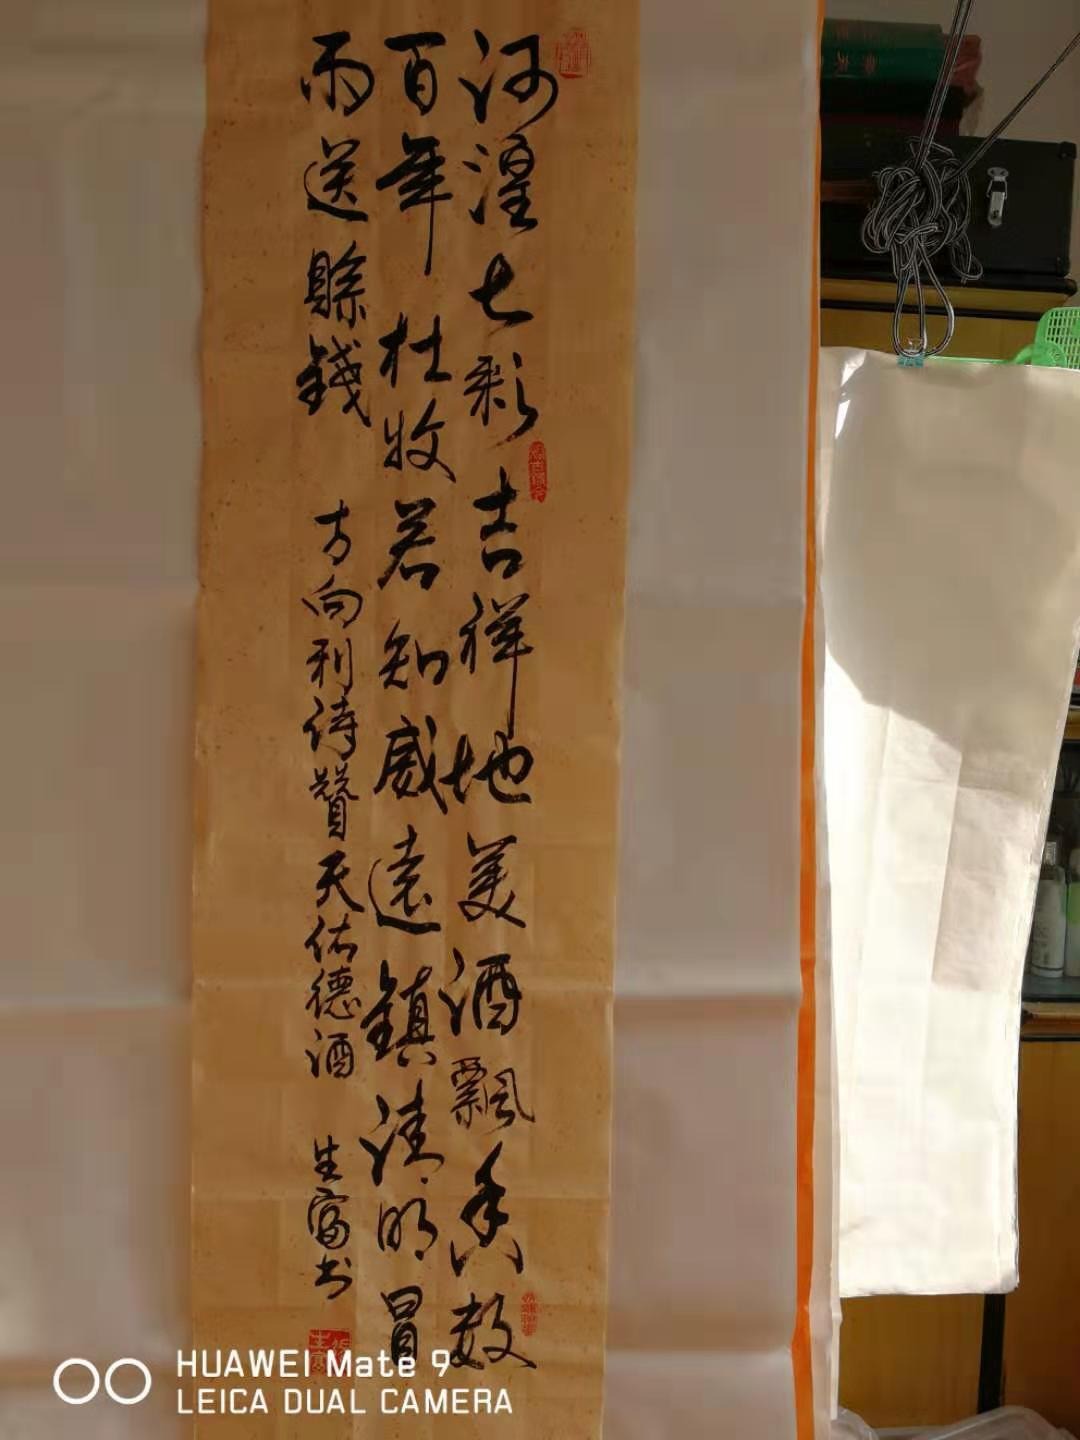 河湟七彩吉祥地美酒飄香数
百年杜牧若知威遠鎮清明冒
雨送賒錢
方向利诗贊天佑德酒
生富书
HUAWEI Mate 9
LEICA DUAL CAMERA